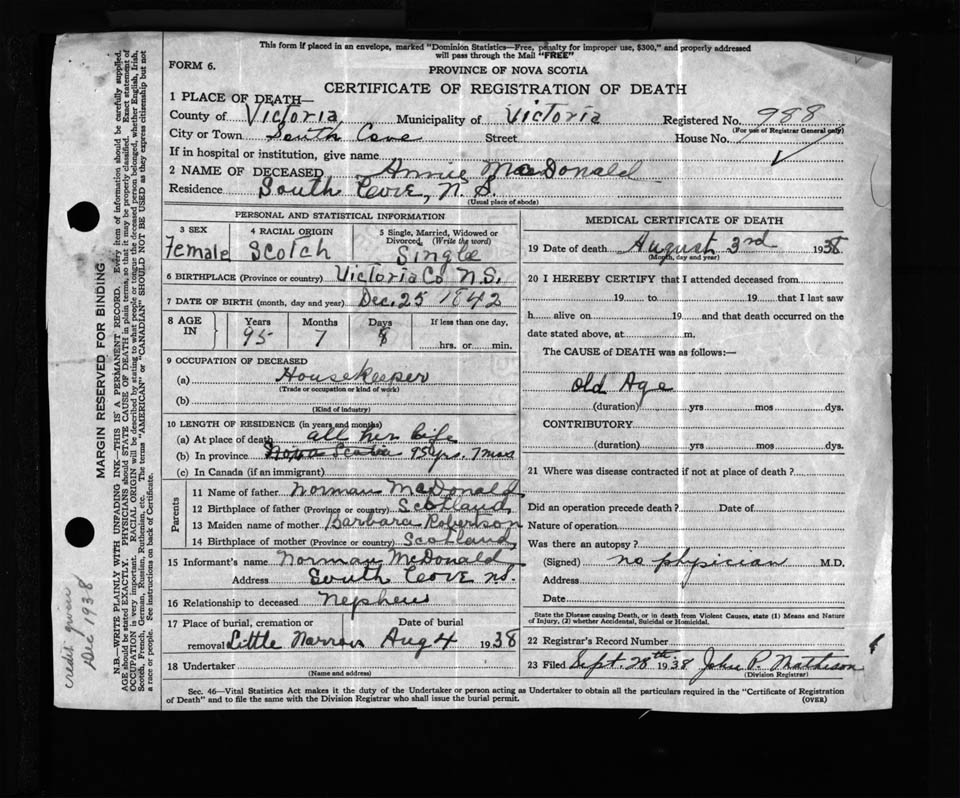 This form if placed in an envelope, marked "Dominion Statistics—Free, penalty for improper use, $300," and properly addressed
will pass through the Mail "FREE"
FORM 6.
PROVINCE OF NOVA SCOTIA
CERTIFICATE OF REGISTRATION OF DEATH
1 PLACE OF DEATH—
County of Victoria Municipality of Victoria Registered No. 988
(For use of Registrar General only)
City or Town South Cove Street House No.
If in hospital or institution, give name
2 NAME OF DECEASED Annie MacDonald
Residence South Cove, N. S.
(Usual place of abode)
PERSONAL AND STATISTICAL INFORMATION
3 SEX 4 RACIAL ORIGIN 5 Single, Married, Widowed or
Divorced. (Write the word)
Female Scotch Single
6 BIRTHPLACE (Province or country) Victoria Co N.S.
7 DATE OF BIRTH (month, day and year) Dec. 25 1842
8 AGE IN Years Months Days If less than one day,
95 7 8 hrs. or min.
9 OCCUPATION OF DECEASED
(a) Housekeeper
(Trade or occupation or kind of work)
(b)
(Kind of industry)
10 LENGTH OF RESIDENCE (in years and months)
(a) At place of death all her life
(b) In province Nova Scotia 95 yrs. 7 mos
(c) In Canada (if an immigrant)
Parents
11 Name of father Norman McDonald
12 Birthplace of father (Province or country) Scotland
13 Maiden name of mother Barbara Robertson
14 Birthplace of mother (Province or country) Scotland
15 Informant's name Norman McDonald
Address South Cove
16 Relationship to deceased Nephew
17 Place of burial, cremation or Date of burial
removal Little Narrows Aug 4 1938
18 Undertaker
(Name and address)
MEDICAL CERTIFICATE OF DEATH
19 Date of death August 3rd 1938
(Month, day and year)
20 I HEREBY CERTIFY that I attended deceased from
19 to 19 that I last saw
h alive on 19 and that death occurred on the
date stated above, at m.
The CAUSE of DEATH was as follows:—
Old Age
(duration) yrs mos dys.
CONTRIBUTORY
(duration) yrs mos dys.
21 Where was disease contracted if not at place of death?
Did an operation precede death? Date of
Nature of operation
Was there an autopsy?
(Signed) no physician M.D.
Address
Date
State the Disease causing Death, or in death from Violent Causes, state (1) Means and Nature
of Injury, (2) whether Accidental, Suicidal or Homicidal.
22 Registrar's Record Number
23 Filed Sept. 28th 1938 John P. Matheson
(Division Registrar)
Sec. 46—Vital Statistics Act makes it the duty of the Undertaker or person acting as Undertaker to obtain all the particulars required in the "Certificate of Registration
of Death" and to file the same with the Division Registrar who shall issue the burial permit. (OVER)
MARGIN RESERVED FOR BINDING
N.B. WRITE PLAINLY WITH UNFADING INK.—THIS IS A PERMANENT RECORD. Every item of information should be carefully supplied.
AGE should be stated EXACTLY. PHYSICIANS should STATE CAUSE OF DEATH in plain terms, so that it may be properly classified. Exact statement of
OCCUPATION is very important. RACIAL ORIGIN will be described by stating to what people or tongue the deceased person belonged, whether English, Irish,
Scotch, French, German, Russian, Ruthenian, etc. The terms "AMERICAN" or "CANADIAN" SHOULD NOT BE USED as they express citizenship but not
a race or people. See instructions on back of Certificate.
credit given
Dec 1938